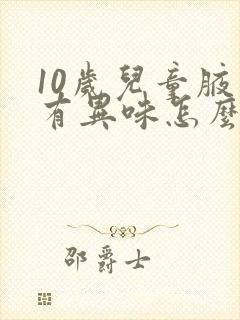 10歲兒童腋
有異味怎麼
邵爵士